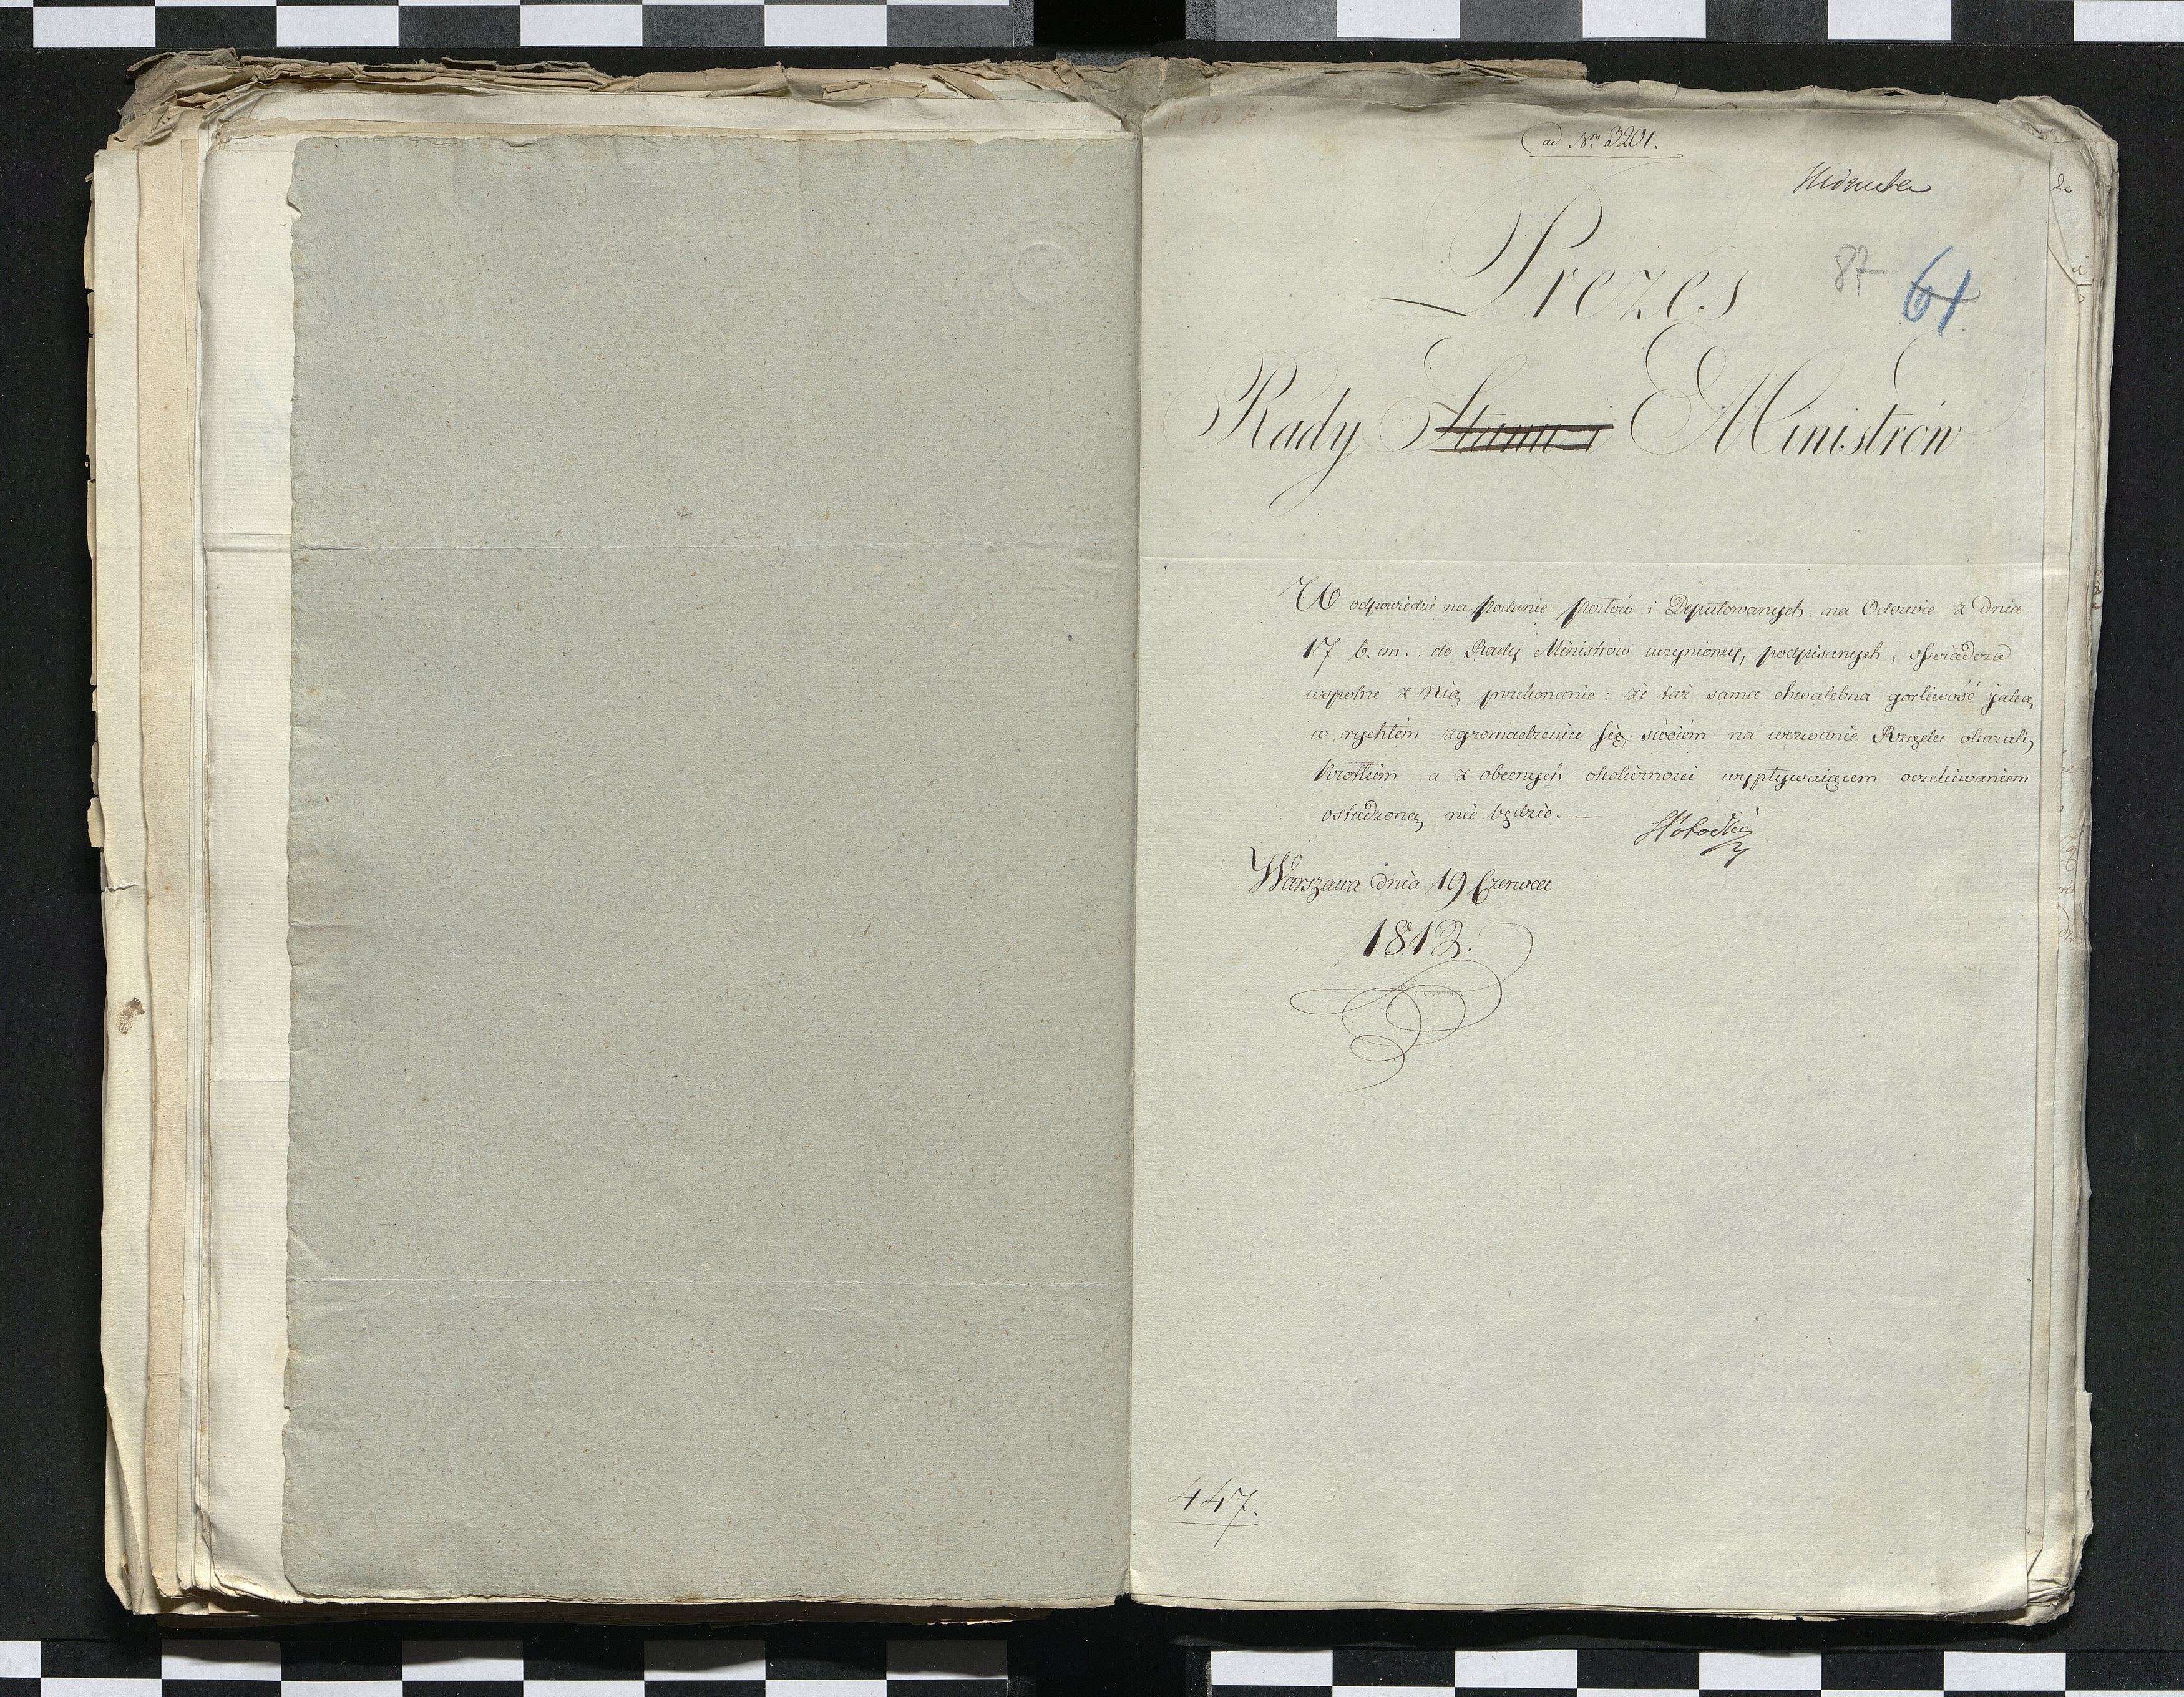 ad Nr. 3201.
Minuta
Prezes
87 61
Rady Stanu i Ministrów
W odpowiedzi na podanie posłów i Deputowanych, na Odezwie z dnia
17 b. m. do Rady Ministrów uczynioney, podpisanych, oświadcza
wspolne z Nią przekonanie: że taż sama chwalebna gorliwość jaką
w rychłem zgromadzeniu się swoiem na wezwanie Rządu okazali,
krotkiem a z obecnych okoliczności wypływaiącem oczekiwaniem
ostudzoną nie będzie. —
Warszawa dnia 19 Czerwca
1812.
447.